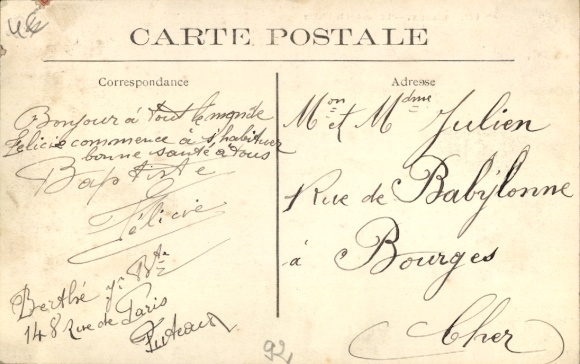 CARTE POSTALE
Correspondance
Bonjour à tout le monde
Félicie commence à s'habituer
bonne santé à tous
Baptiste
Félicie
Berthé
148 Rue de Paris
Puteaux
Adresse
Mon et Mdme Julien
1 Rue de Babylonne
à Bourges
Cher
92